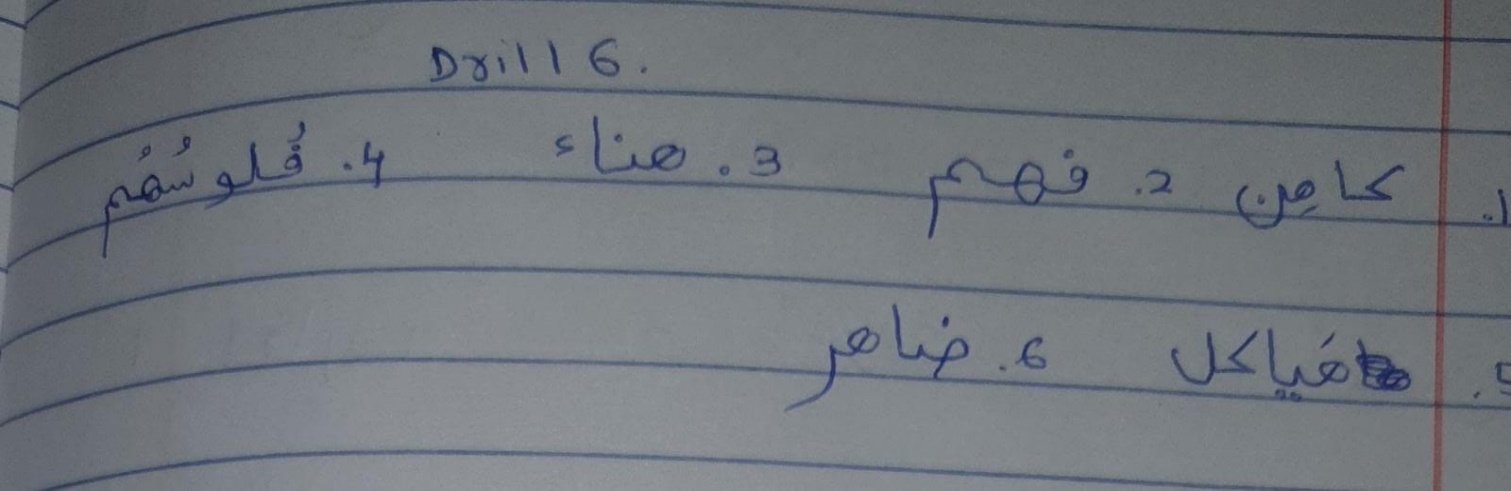 Drill 6.
1. كاهن 2. فهم 3. هناء 4. فُلوسُهُم
5. هَياكل 6. ضاهر